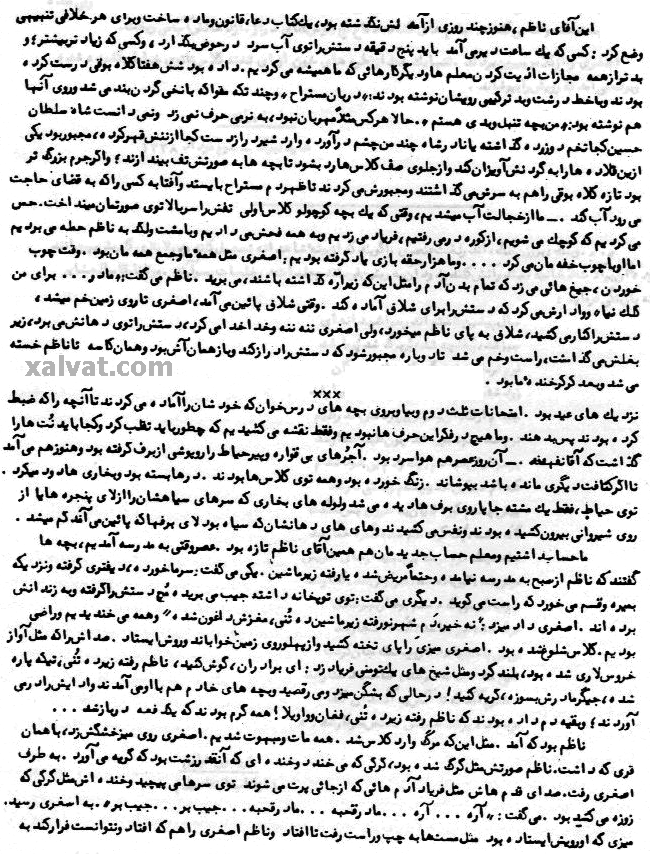 این آقای ناظم، هنوز چند روزی از آمدنش نگذشته بود، یک کتاب دعا، قانون و ماده ساخت و برای هر خلافی تنبیهی
وضع کرد: کسی که یک ساعت دیر می آمد باید پنج دقیقه دستش را توی آب سرد در حوض بگذارد، وکسی که زیاد تر بیشتر؛ و
بد تر از همه مجازات اذیت کردن معلم ها و دیگر کارهائی که ما همیشه می کردیم. داده بود شش هفتا کلاه بوقی درست کرده
بودند و با خط درشت و بد ترکیبی رویشان نوشته بودند: «دربان مستراح» و چند تکه مقوا که با نخی گردن بند می شد و روی آنها
هم نوشته بود: «من بچه تنبل و بدی هستم». حالا هر کس مثلاً مهربان نبود، به نرمی حرف نمی زد و نمی دانست شاه سلطان
حسین کجا تخم دو زرده گذاشته یا نادر شاه چند من چشم درآورده و ارد شیر دراز دست کجا از ننش قهر کرده، مجبور بود یکی
ازین قلاده ها را به گردنش آویزان کند و از جلوی صف کلاس ها رد بشود تا بچه ها به صورتش تف بیندازند؛ و اگر جرم بزرگ تر
بود تازه کلاه بوقی را هم به سرش می گذاشتند و مجبورش می کردند تا ظهر دم مستراح بایستد و آفتابه کسی را که به قضای حاجت
می رود آب کند. ـ ما از خجالت آب میشدیم، وقتی که یک بچه کوچولو کلاس اولی تفش را سربالا توی صورتمان میانداخت. حس
می کردیم که کوچک می شویم، از کوره در می رفتیم، فریاد می زدیم و به همه فحش می دادیم و با مشت و لگد به ناظم حمله می بردیم
اما او با چوب خفه مان می کرد .... و ما هزار حقه بازی یاد گرفته بودیم: اصغری مثل همه ما و جمع همه مان بود. وقت چوب
خوردن، جیغ هائی می زد که تمام بدن آدم را مثل این که زیر اره گذاشته باشند، می برید. ناظم می گفت: «مادر... برای من
کلک نیا» و وادارش می کرد که دستش را برای شلاق آماده کند. وقتی شلاق پائین می آمد، اصغری تا روی زمین خم میشد،
دستش را کنار می کشید، شلاق به پای ناظم میخورد، ولی اصغری ننه ننه و خدا خدا می کرد، دستش را توی دهانش می برد، زیر
بغلش می گذاشت، راست و خم می شد تا دوباره مجبور شود که دستش را دراز کند و باز همان آش بود و همان کاسه تا ناظم خسته
می شد و بعد کرکر خنده ما بود.
xalvat.com
×××
نزدیک های عید بود. امتحانات ثلث دوم و بیا و بروی بچه های درس خوان که خودشان را آماده می کردند تا آنچه را که ضبط
کرده بودند پس بدهند. و ما هیچ در فکر این حرف ها نبودیم و فقط نقشه می کشیدیم که چطور باید تقلب کرد و کجا باید نت ها را
گذاشت که آقا نفهمند. ـ آن روز عصر هم هوا سرد بود. آجرهای بی قواره و پیر حیاط را روپوشی از برف گرفته بود و هنوز هم می آمد
تا اگر کثافت دیگری مانده باشد بپوشاند. زنگ خورده بود و همه توی کلاس ها بودند. درها بسته بود و بخاری ها دود میکرد.
توی حیاط، فقط یک مشته جا پا روی برف ها دیده می شد و لوله های بخاری که سرهای سیاهشان را از لای پنجره ها یا از
روی شیروانی بیرون کشیده بودند و نفس می کشیدند و های های دهانشان که سیاه بود لای برفها که پائین می آمد گم میشد.
ما حساب داشتیم و معلم حساب جدیدمان هم همین آقای ناظم تازه بود. عصر وقتی به مدرسه آمدیم، بچه ها
گفتند که ناظم از صبح به مدرسه نیامده و حتماً مریض شده یا رفته زیر ماشین. یکی می گفت: سرما خورده، دیفتری گرفته و نزدیکه
بمیره و قسم می خورد که راست می گوید. دیگری می گفت: توی توپخانه داشته جیب می بریده مچ دستش را گرفته و به زندانش
برده اند. اصغری داد میزد: «نه خیر، دم شهر نو رفته زیر ماشین ده تنی، مغزش داغون شده» و همه می خندیدیم و راضی
بودیم. کلاس شلوغ شده بود. اصغری میزی را پای تخته کشید و از پهلو روی زمین خواباند و رویش ایستاد. صداش را که مثل آواز
خروس لاری شده بود، بلند کرد و مثل شیخ های یک تومنی فریاد زد: ای برادران، گوش کنید، ناظم رفته زیر ده تنی، تیکه پاره
شده، جیگر مادرش بسوزه، گریه کنید! در حالی که بشگن میزد و می رقصید و بچه های خادم هم با او می آمدند و ادایش را در می
آوردند؛ و بقیه دم داده بودند که ناظم رفته زیر ده تنی، فغان و واویلا! همه گرم بودند که یک دفعه در باز شد...
ناظم بود که آمد. مثل این که مرگ وارد کلاس شد. همه مات و مبهوت شدیم. اصغری روی میز خشکش زد، با همان
قری که داشت. ناظم صورتش مثل گرگ شده بود، گرگی که می خندد و خنده ای که آنقدر زشت بود که گریه می آورد. به طرف
اصغری رفت. صدای قدم هاش مثل فریاد آدم هائی که از جائی پرت می شوند توی سرها می پیچید و خنده اش مثل گرگی که
زوزه می کشید بود. می گفت: «آره ... آره ... مادر قحبه ... مادر قحبه ... جیب بر ... جیب بر». به اصغری رسید.
میزی که او رویش ایستاده بود مثل مست ها به چپ و راست رفت تا افتاد و ناظم اصغری را هم که افتاد و نتوانست فرار کند به